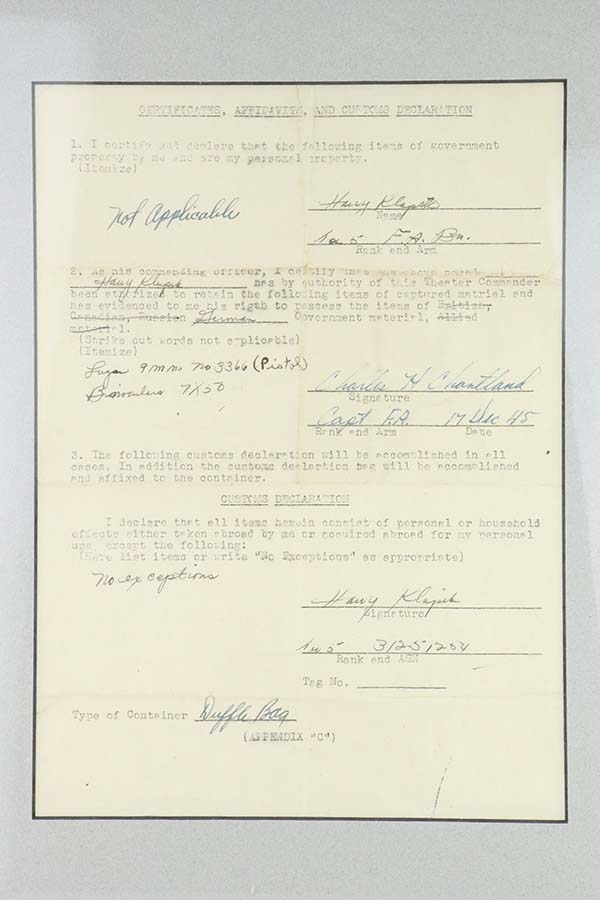 CERTIFICATES, AFFIDAVITS, AND CUSTOMS DECLARATION
1. I certify and declare that the following items of government
property by me and are my personal property.
(Itemize)
Not Applicable
Harry
Name
5 F.A. Bn.
Rank and Arm
2. As his commanding officer, I certify that
Harry has by authority of this Theater Commander
been to retain the following items of captured matrial and
has evidenced to me his rigth to possess the items of British,
Canadian, Russian German Government material, Allied
material.
(Strike out words not applicable)
(Itemize)
Luger 9 m.m. No 3366 (Pistol)
7X50
Charles H Chantland
Signature
Capt F.A. 17 Dec 45
Rank and Arm Date
3. The following customs declaration will be accomplished in all
cases. In addition the customs declartion bag will be accomplished
and affixed to the container.
CUSTOMS DECLARATION
I declare that all items herein consist of personal or household
effects either taken abroad by me or acquired abroad for my personal
use, except the following:
(Here list items or write "No Exceptions" as appropriate)
No exceptions
Harry
Signature
5 31251254
Rank and ASN
Tag No.
Type of Container Duffle Bag
(APPENDIX "C")